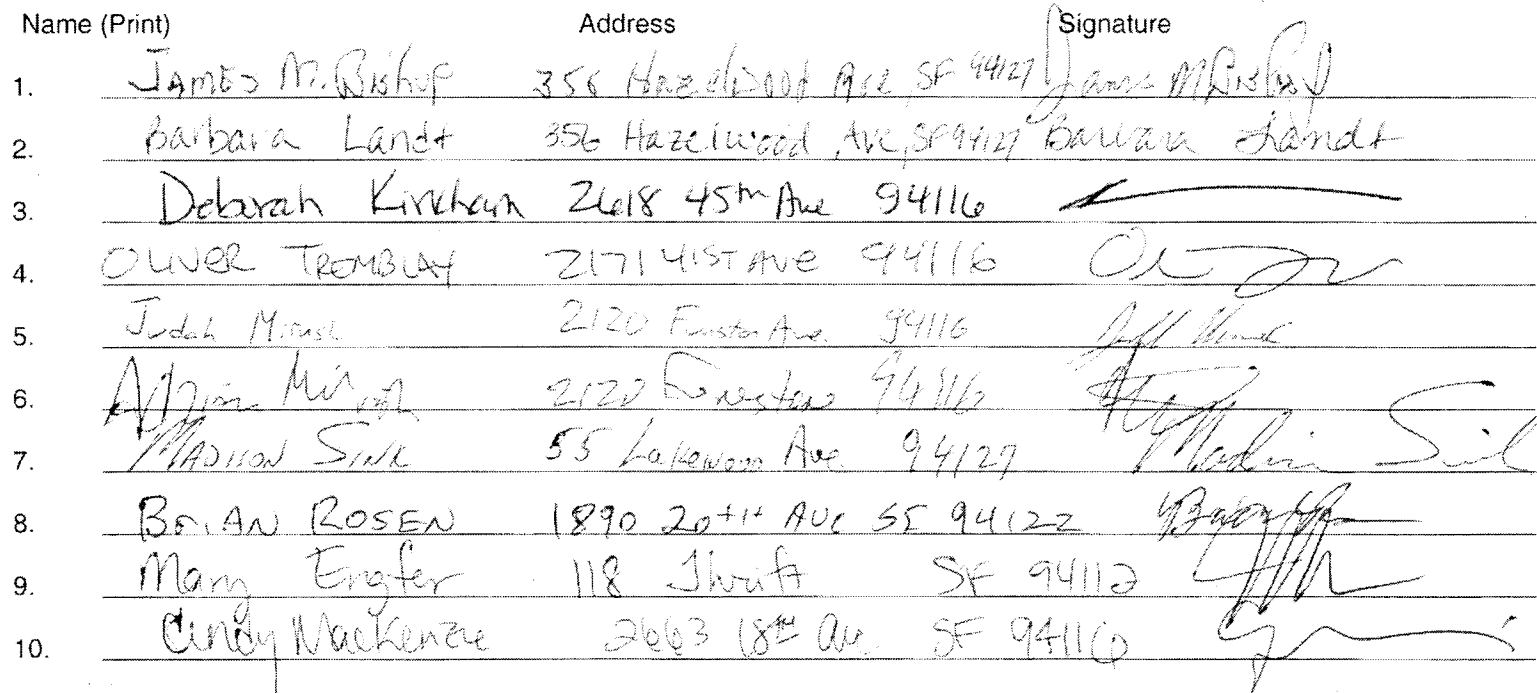 Name (Print) Address Signature
1. James M. Bishop 356 Hazelwood Ave, SF 94127 James M Bishop
2. Barbara Landt 356 Hazelwood Ave, SF 94127 Barbara Landt
3. Deborah Kirkham 2618 45th Ave 94116
4. OLIVER TREMBLAY 2171 41ST AVE 94116
5. Judah Mirvish 2120 Funston Ave. 94116
6. 2120 Funston 94116
7. MADISON SINK 55 Lakewood Ave. 94127 Madison Sink
8. BRIAN ROSEN 1890 20th AVE SF 94122
9. Mary Engfer 118 Thrift SF 94112
10. Cindy MacKenzie 2663 18th Ave SF 94116